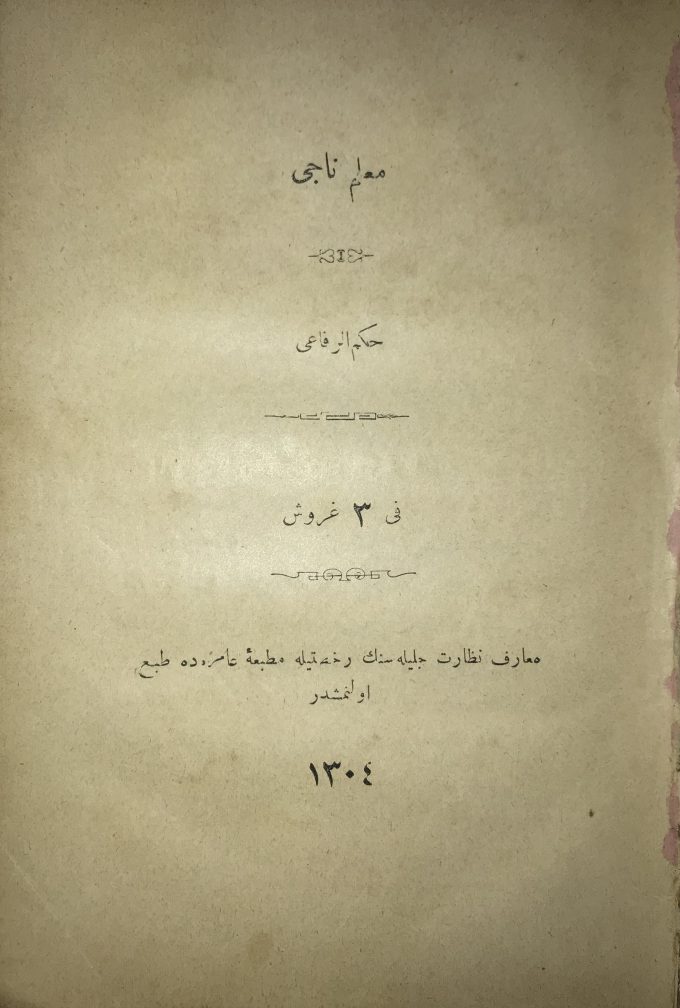 معلم ناجی
حکم الرفاعی
فی ٣ غروش
معارف نظارت جلیله سنك رخصتیله مطبعهٔ عامره ده طبع
اولنمشدر
١٣٠٤